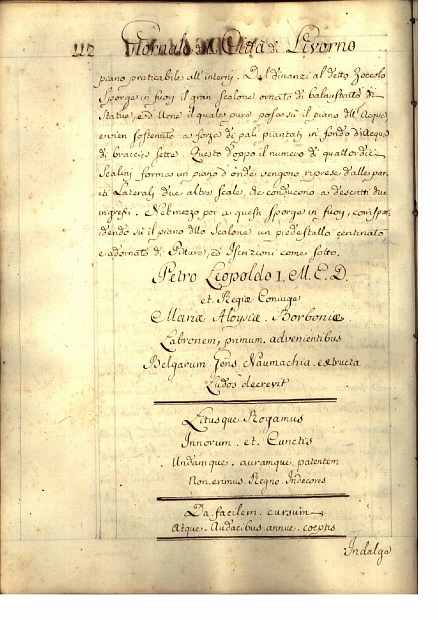 112 Giornale della Città di Livorno
piano praticabile all'interno. Dal dinanzi al detto Zoccolo
sporge in fuori il gran Scalone ornato di balaustrato di
Statue, ed Urne il quale pure posa sù il piano dell'Acque
e vien sostenuto a forza di pali piantati in fondo di Acque
di braccie sette. Questo doppo il numero di quattordici
Scalini forma un piano d'onde vengono riprese dalle par-
ti Laterali due altre scale, che conducono a descritti due
ingressi. Nel mezzo poi a questi sporge in fuori, corrispon-
dendo sù il piano dello Scalone un piedestallo centinato
e adornato di Pitture, ed Iscrizioni come sotto.
Petro Leopoldo I. M. E. D.
et Regiæ Coniuge
Mariæ Aloysiæ Borboniæ
Labronem, primum, advenientibus
Belgarum Gens. Naumachia. extructa
Ludos decrevit
Litusque Rogamus
Innocuum. et. Cunctis
Undamque. auramque. patentem
Non. erimus. Regno. Indecores
Da. facilem. cursum
Atque. Audacibus. annue. coeptis
Indalga